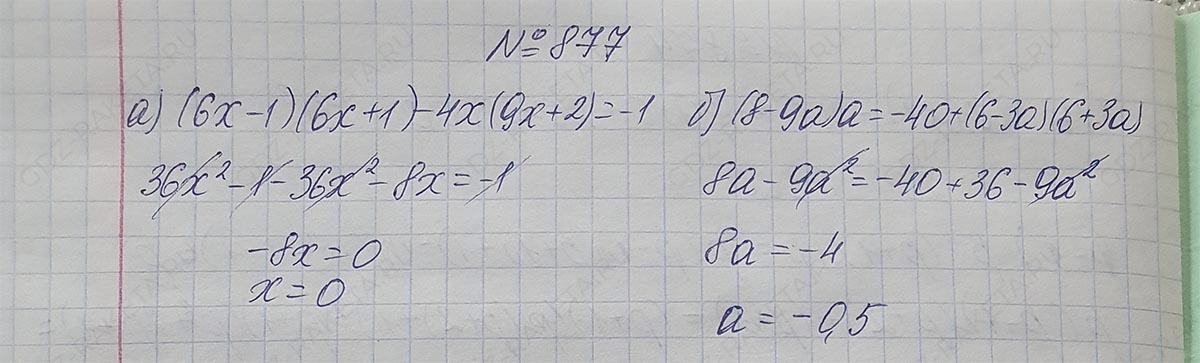 №877
а) (6x-1)(6x+1)-4x(9x+2)=-1
36x²-1-36x²-8x=-1
-8x=0
x=0
б) (8-9a)a=-40+(6-3a)(6+3a)
8a-9a²=-40+36-9a²
8a=-4
a=-0,5